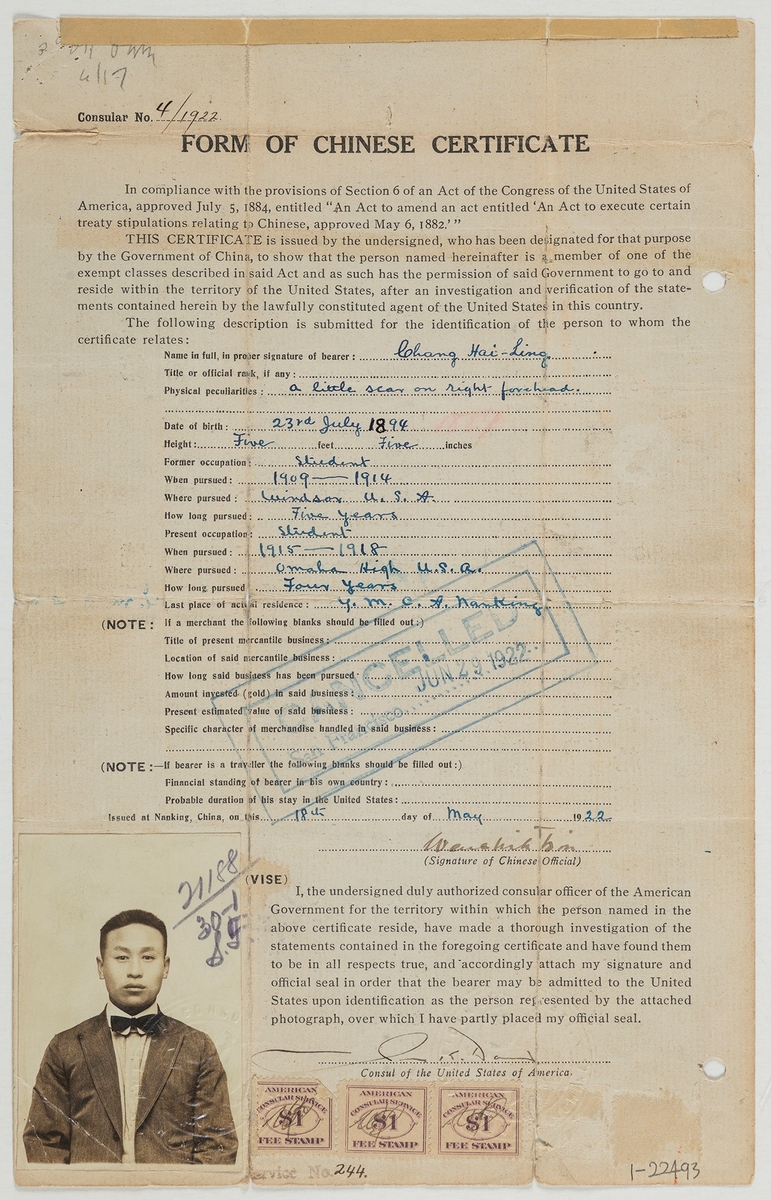 4/17
Consular No. 4/1922
FORM OF CHINESE CERTIFICATE
In compliance with the provisions of Section 6 of an Act of the Congress of the United States of
America, approved July 5, 1884, entitled "An Act to amend an act entitled 'An Act to execute certain
treaty stipulations relating to Chinese, approved May 6, 1882.' "
THIS CERTIFICATE is issued by the undersigned, who has been designated for that purpose
by the Government of China, to show that the person named hereinafter is a member of one of the
exempt classes described in said Act and as such has the permission of said Government to go to and
reside within the territory of the United States, after an investigation and verification of the state-
ments contained herein by the lawfully constituted agent of the United States in this country.
The following description is submitted for the identification of the person to whom the
certificate relates:
Name in full, in proper signature of bearer: Chang Hai-Ling
Title or official rank, if any:
Physical peculiarities: a little scar on right forehead.
Date of birth: 23rd July 1894
Height: Five feet Five inches
Former occupation: Student
When pursued: 1909—1914
Where pursued: Windsor U. S. A
How long pursued: Five Years
Present occupation: Student
When pursued: 1915—1918
Where pursued: Omaha High U.S.A.
How long pursued Four Years
Last place of actual residence: Y. M. C. A. Nanking
(NOTE: If a merchant the following blanks should be filled out:)
Title of present mercantile business:
Location of said mercantile business:
How long said business has been pursued:
Amount invested (gold) in said business:
Present estimated value of said business:
Specific character of merchandise handled in said business:
CANCELLED
JUN 29 1922
San Francisco
(NOTE:—If bearer is a traveller the following blanks should be filled out:)
Financial standing of bearer in his own country:
Probable duration of his stay in the United States:
Issued at Nanking, China, on this 18th day of May 1922
(Signature of Chinese Official)
21188
30-1
(VISE)
I, the undersigned duly authorized consular officer of the American
Government for the territory within which the person named in the
above certificate reside, have made a thorough investigation of the
statements contained in the foregoing certificate and have found them
to be in all respects true, and accordingly attach my signature and
official seal in order that the bearer may be admitted to the United
States upon identification as the person represented by the attached
photograph, over which I have partly placed my official seal.
Consul of the United States of America.
AMERICAN CONSULAR SERVICE $1 FEE STAMP
AMERICAN CONSULAR SERVICE $1 FEE STAMP
AMERICAN CONSULAR SERVICE $1 FEE STAMP
Service No. 244.
1-22493